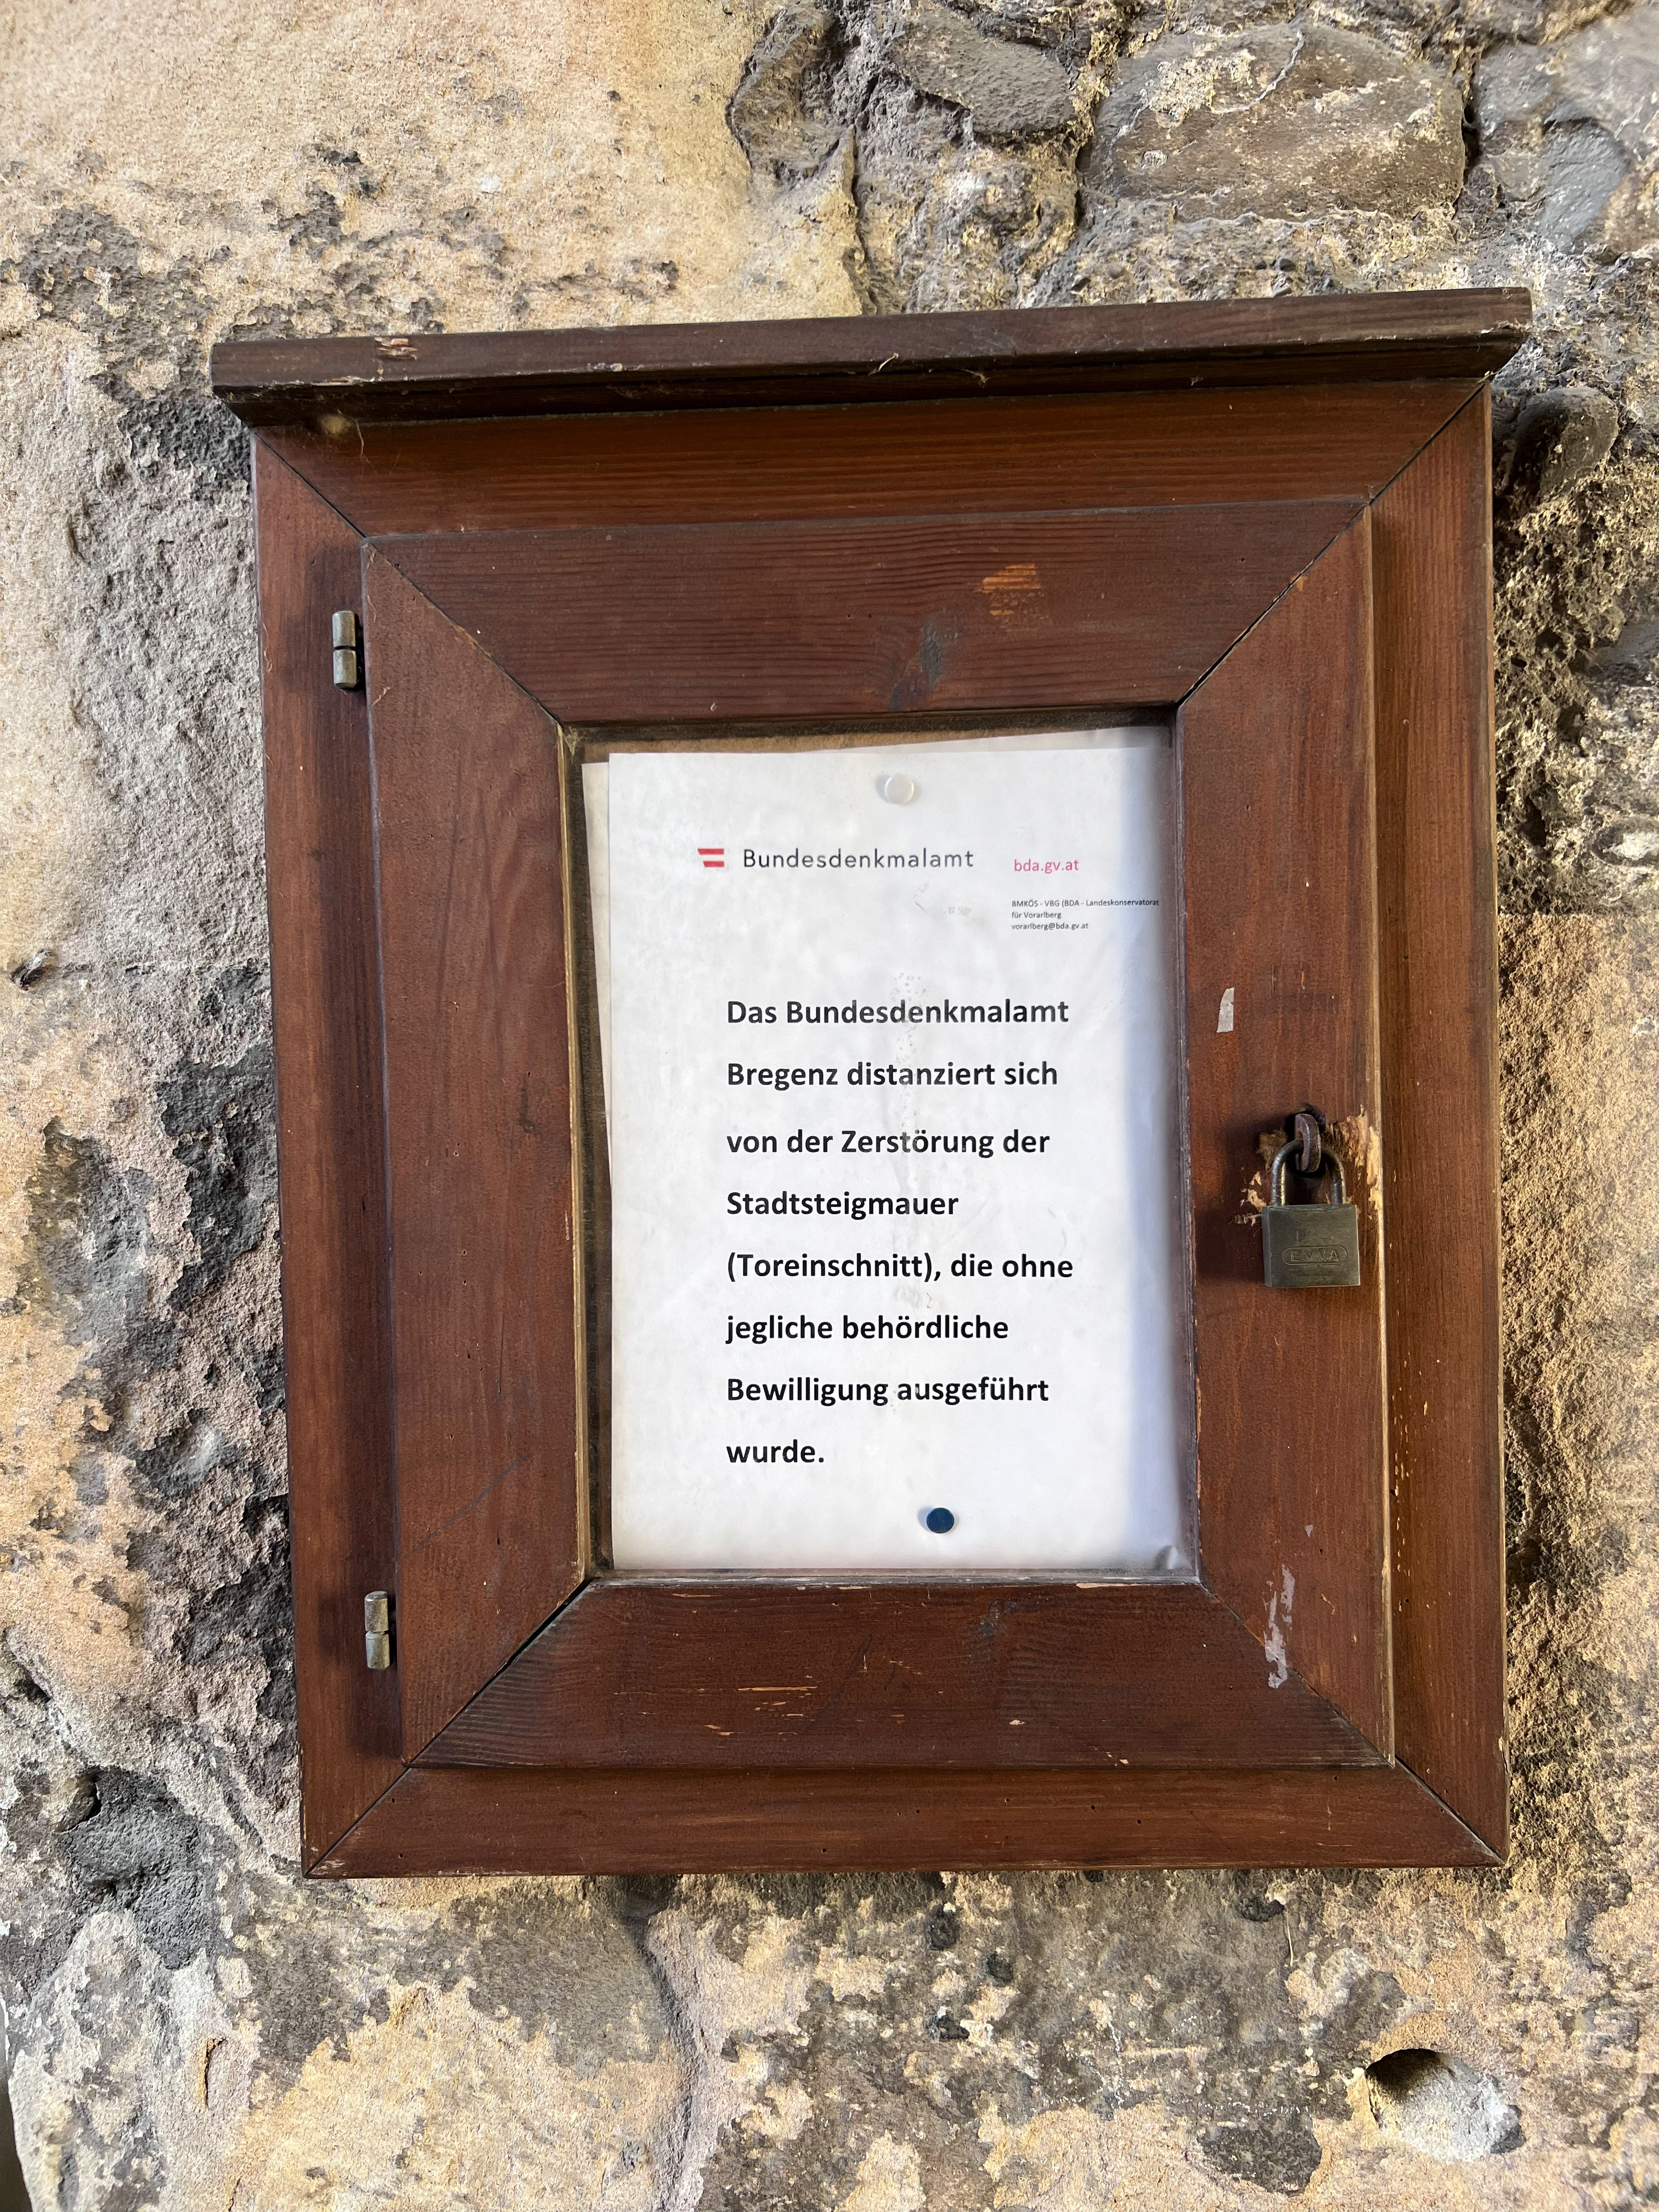 Bundesdenkmalamt
bda.gv.at
BMKÖS - VBG (BDA - Landeskonservatorat
für Vorarlberg
vorarlberg@bda.gv.at
Das Bundesdenkmalamt
Bregenz distanziert sich
von der Zerstörung der
Stadtsteigmauer
(Toreinschnitt), die ohne
jegliche behördliche
Bewilligung ausgeführt
wurde.
EVVA